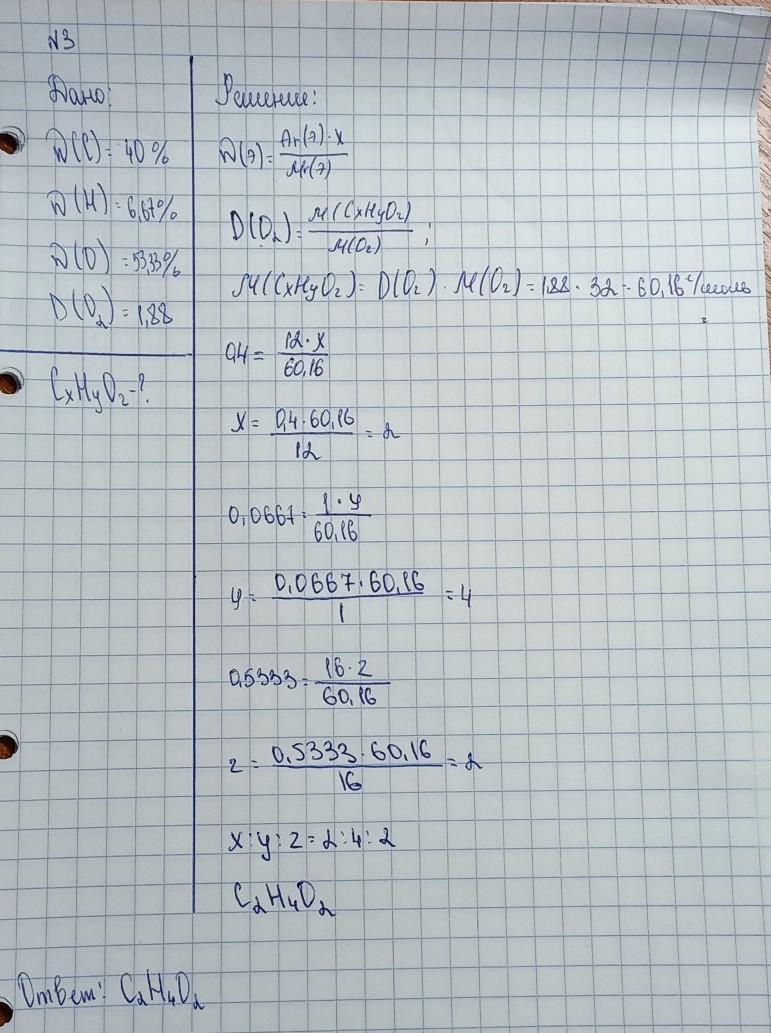 N3
Дано:
W(C) = 40%
W(H) = 6,67%
W(O) = 53,33%
D(O₂) = 1,88
CxHyOz-?
Решение:
W(э) = Ar(э)·x / Mr(э)
D(O₂) = M(CxHyOz) / M(O₂) ;
M(CxHyOz) = D(O₂) · M(O₂) = 1,88 · 32 = 60,16 г/моль
0,4 = 12·x / 60,16
x = 0,4·60,16 / 12 = 2
0,0667 = 1·y / 60,16
y = 0,0667·60,16 / 1 = 4
0,5333 = 16·z / 60,16
z = 0,5333·60,16 / 16 = 2
x:y:z = 2:4:2
C₂H₄O₂
Ответ: C₂H₄O₂